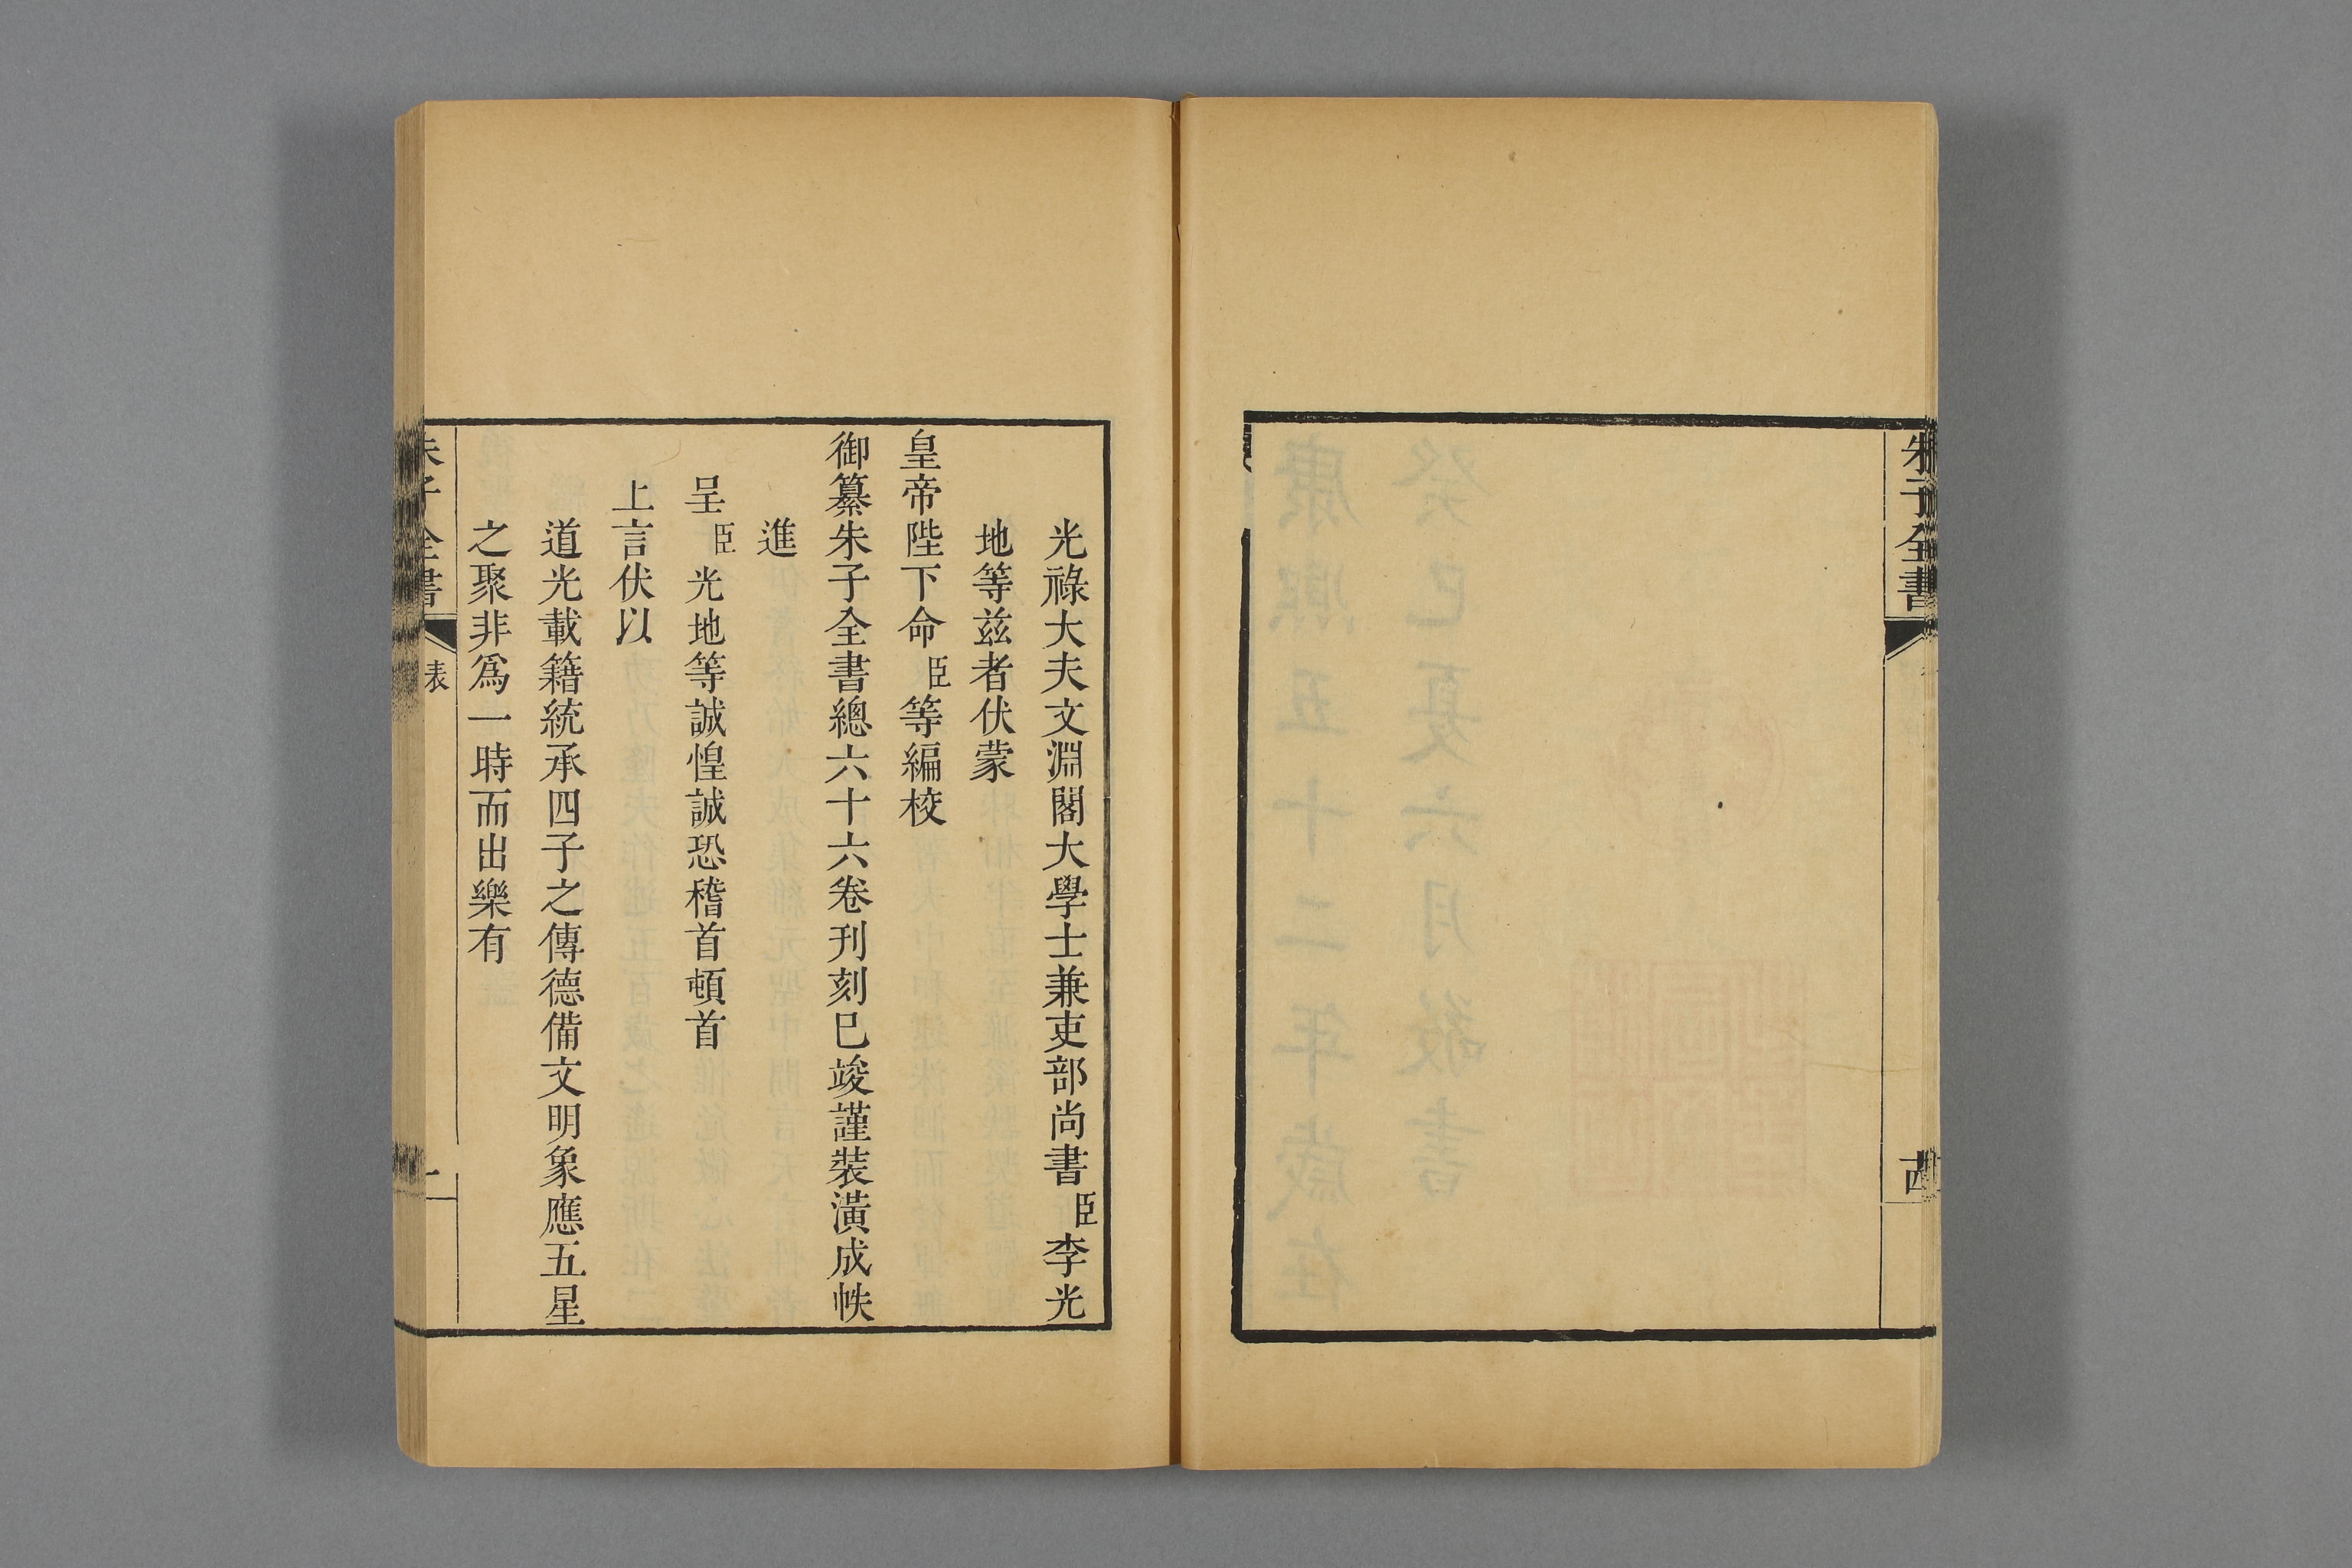 朱子全書
光祿大夫文淵閣大學士兼吏部尚書臣李光
地等兹者伏蒙
皇帝陛下命臣等編校
御纂朱子全書總六十六卷刊刻巳竣謹裝潢成帙
進
呈臣光地等誠惶誠恐稽首頓首
上言伏以
道光載籍統承四子之傳德備文明象應五星
之聚非爲一時而出樂有
朱子全書 表 一